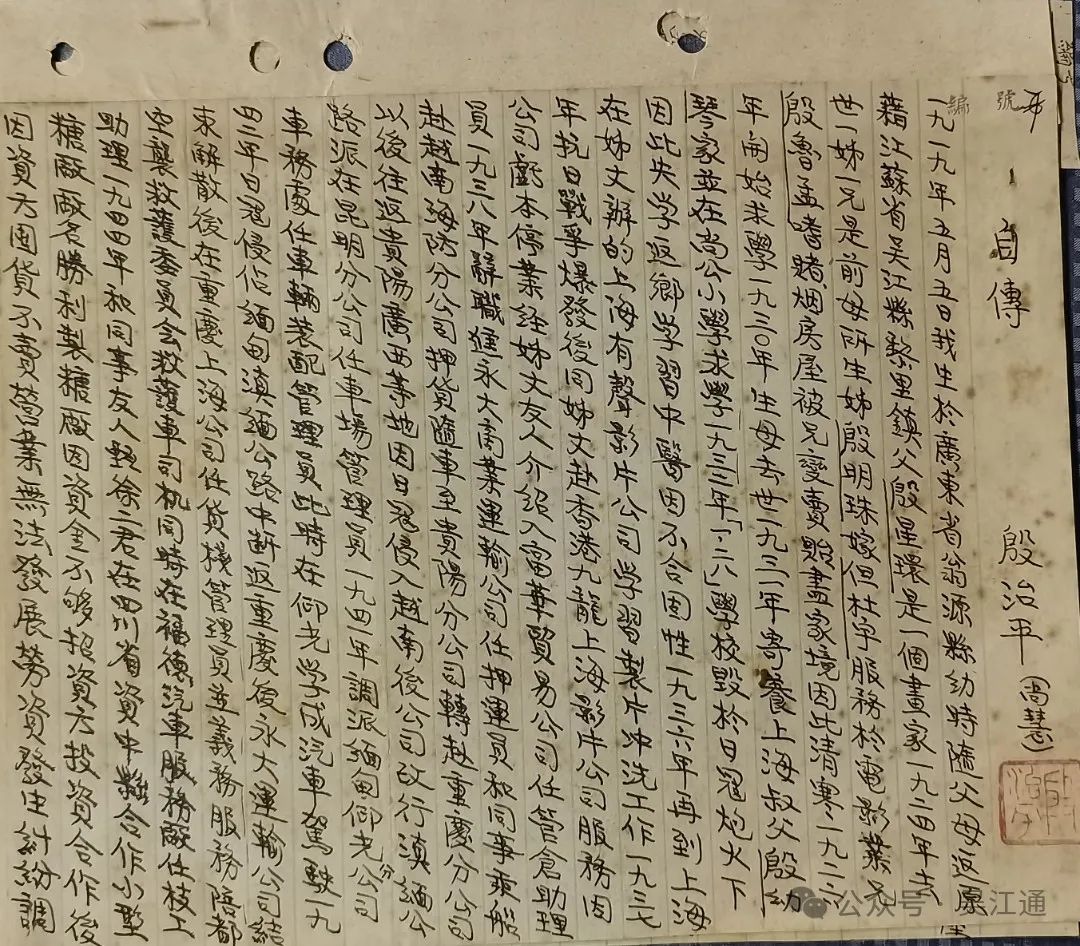 編號
自傳
殷治平(尚慧)
一九一九年五月五日我生於廣東省翁源縣幼時隨父母返原
籍江蘇省吴江縣黎里鎮父殷星環是一個畫家一九二四年去
世一姊一兄是前母所生姊殷明珠嫁但杜宇服務於電影業兄
殷魯孟嗜賭烟房屋被兄变賣賠盡家境因此清寒一九二六
年開始求學一九三〇年生母去世一九三一年寄養上海叔父殷幼
琴家並在尚公小學求學一九三二年「一·二八」學校毀於日冦炮火下
因此失学返鄉学習中醫因不合固性一九三六年再到上海
在姊丈辦的上海有聲影片公司学習製片冲洗工作一九三七
年抗日戰爭爆發後同姊丈赴香港九龍上海影片公司服務因
公司戲本停業經姊丈友人介紹入富華貿易公司任管倉助理
員一九三八年辭職進永大商業運輸公司任押運員和同事乘船
赴越南海防分公司押貨隨車至貴陽分公司轉赴重慶分公司
以後往返貴陽廣西等地因日冦侵入越南後公司改行滇緬公
路派在昆明分公司任車場管理員一九四一年調派緬甸仰光分公司
車務處任車輛装配管理員此時在仰光学成汽車駕駛一九
四二年日冦侵佔緬甸滇緬公路中断返重慶後永大運輸公司結
束解散後在重慶上海公司任貨棧管理員並義務服務陪都
空襲救護委員会救護車司机同時在福德汽車服務廠任技工
助理一九四四年和同事友人甄徐二君在四川省資中縣合作小型
糖廠廠名勝利製糖廠因資金不够招資方投資合作後
因資方囤貨不賣营業無法發展勞資發生糾紛調
公众号 吴江通